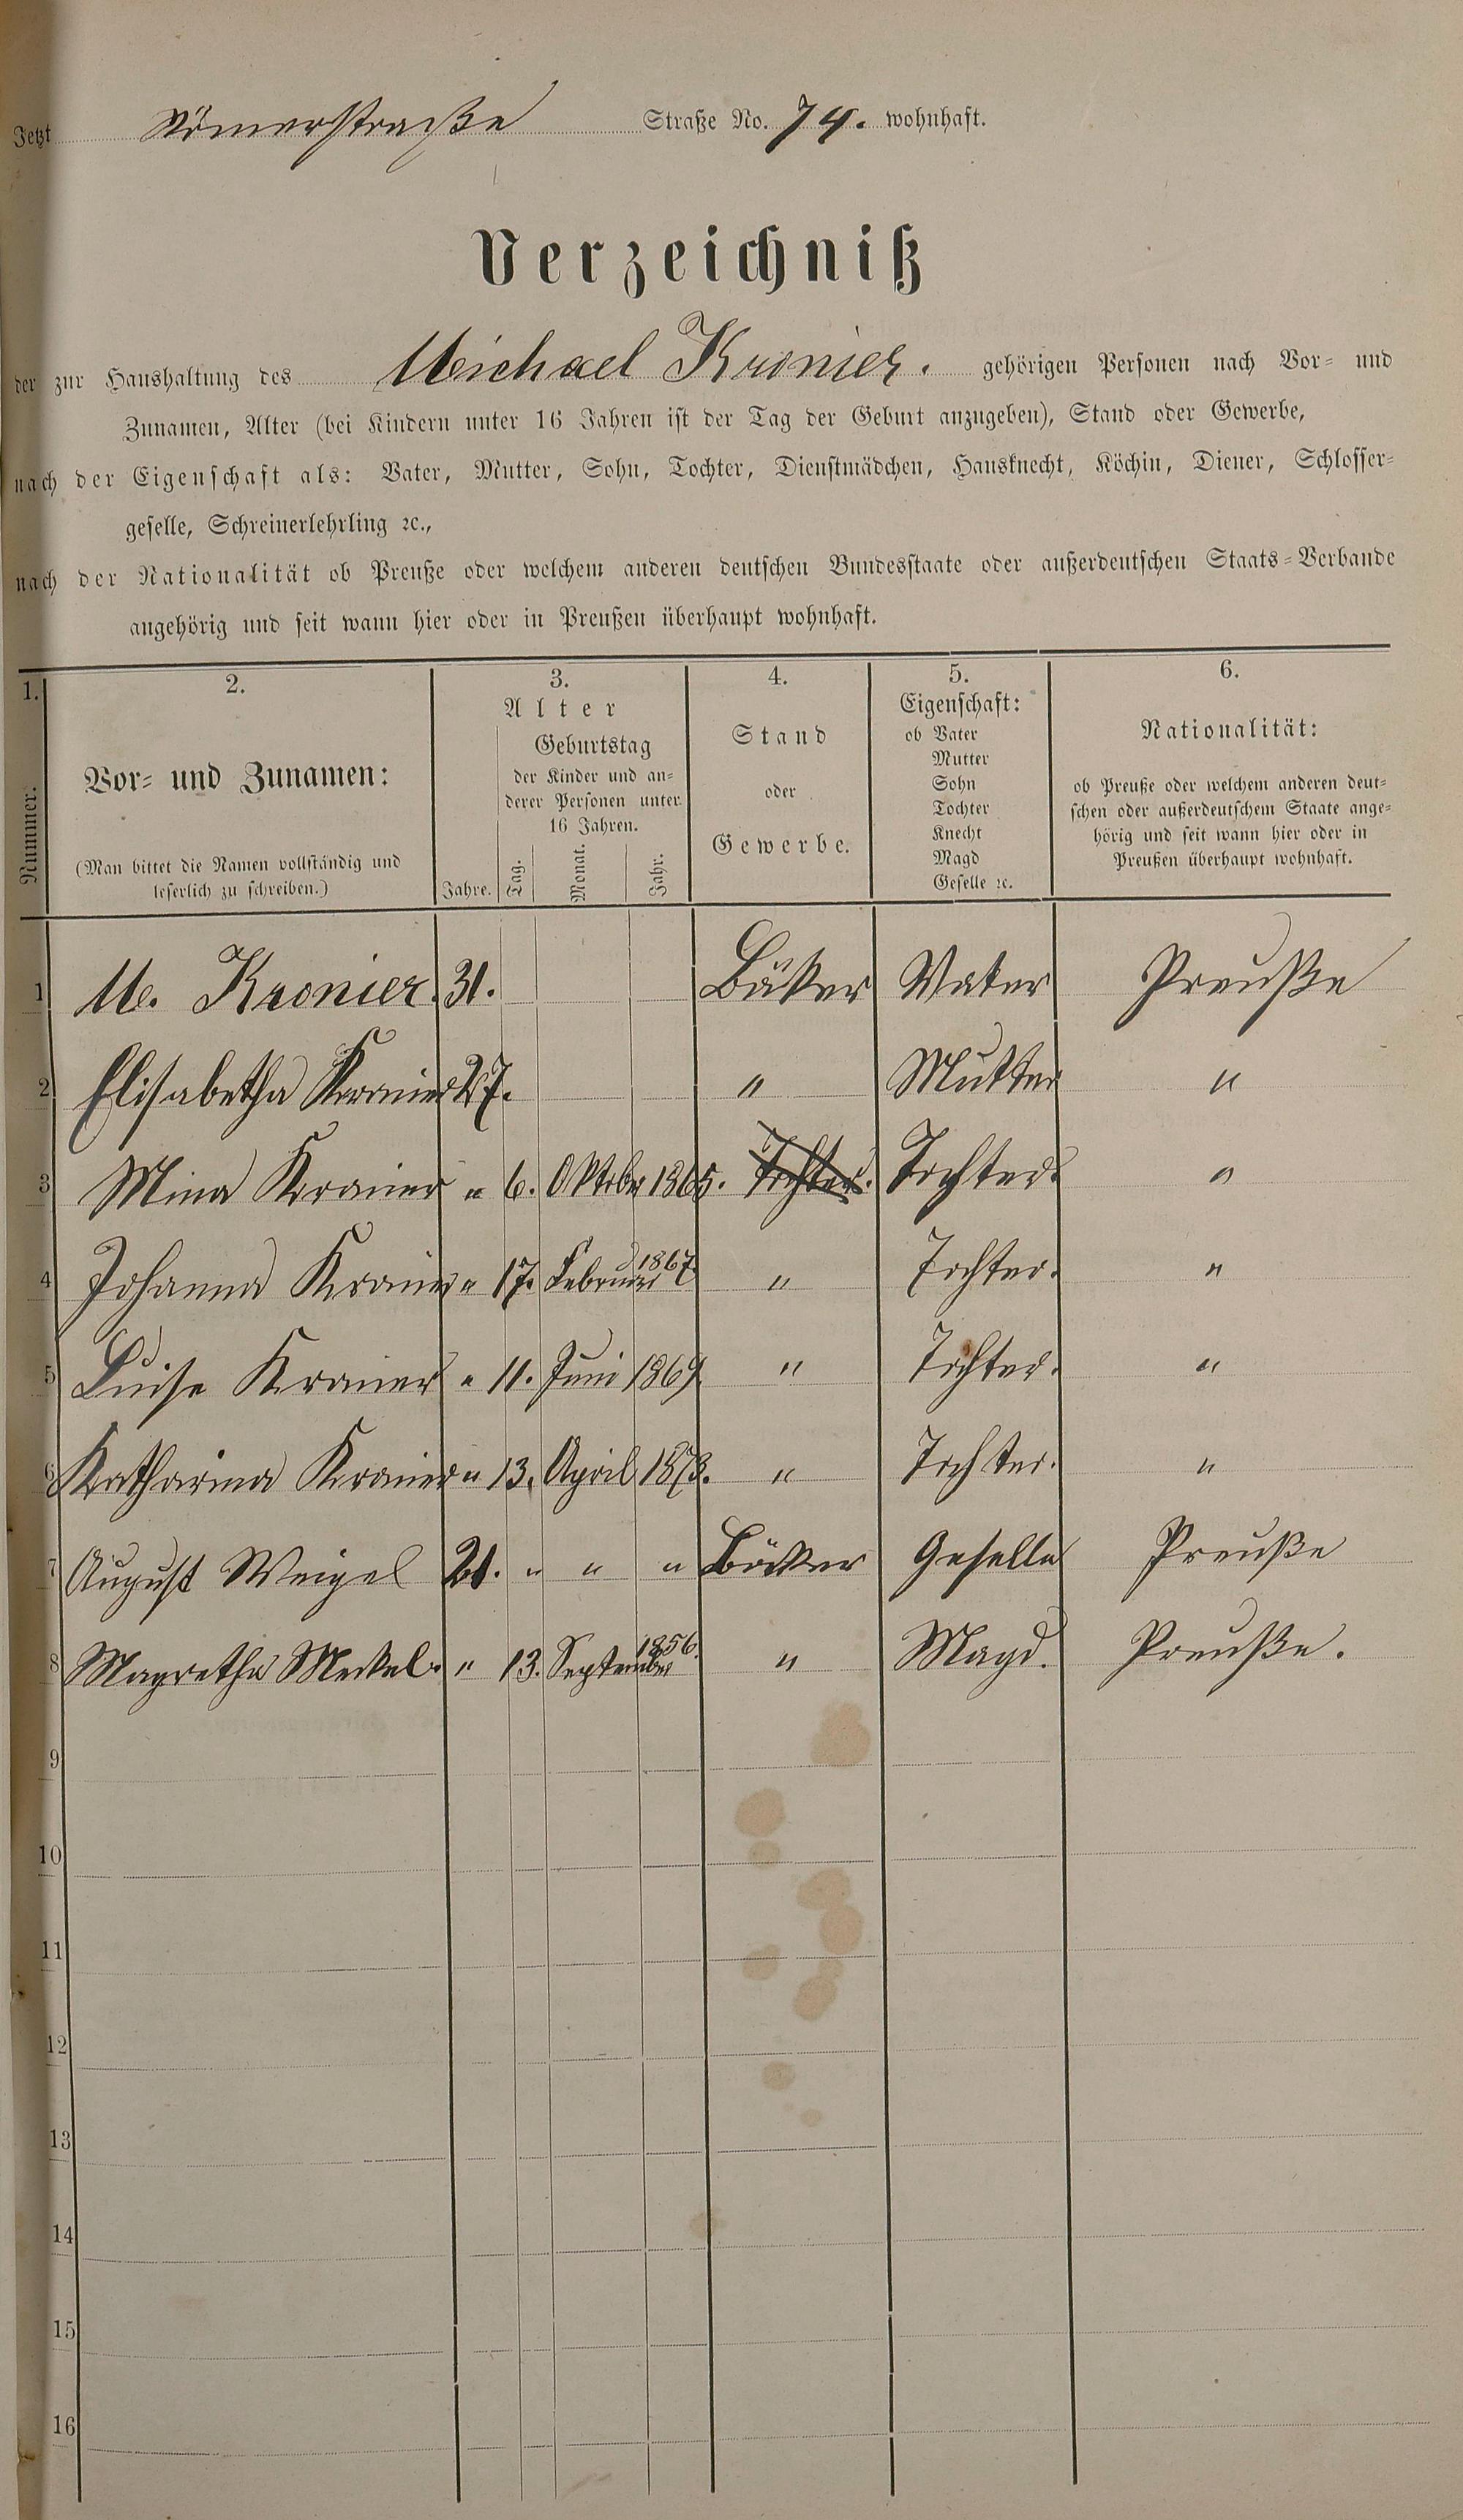 Jetzt Römerstraße Straße No. 74. wohnhaft.
Verzeichniß
der zur Haushaltung des Michael Kronier. gehörigen Personen nach Vor- und
Zunamen, Alter (bei Kindern unter 16 Jahren ist der Tag der Geburt anzugeben), Stand oder Gewerbe,
nach der Eigenschaft als: Vater, Mutter, Sohn, Tochter, Dienstmädchen, Hausknecht, Köchin, Diener, Schlosser-
geselle, Schreinerlehrling ꝛc.,
nach der Nationalität ob Preuße oder welchem anderen deutschen Bundesstaate oder außerdeutschen Staats-Verbande
angehörig und seit wann hier oder in Preußen überhaupt wohnhaft.
1.
Nummer.
2.
Vor- und Zunamen:
(Man bittet die Namen vollständig und
leserlich zu schreiben.)
3.
Alter
Jahre.
Geburtstag
der Kinder und an-
derer Personen unter
16 Jahren.
Tag. Monat. Jahr.
4.
Stand
oder
Gewerbe.
5.
Eigenschaft:
ob Vater
Mutter
Sohn
Tochter
Knecht
Magd
Geselle ꝛc.
6.
Nationalität:
ob Preuße oder welchem anderen deut-
schen oder außerdeutschem Staate ange-
hörig und seit wann hier oder in
Preußen überhaupt wohnhaft.
1 M. Kronier. 31. Bäker Vater Preuße
2 Elisabetha Kronier 27. " Mutter "
3 Mina Kronier " 6. Oktober 1865. Tochter. Tochter. "
4 Johanna Kronier " 17. Februar 1867 " Tochter. "
5 Luise Kronier " 11. Juni 1869 " Tochter. "
6 Katharina Kronier " 13. April 1873. " Tochter. "
7 August Weigel 21. " " " Bäker Geselle Preuße
8 Magretha Meckel. " 13. September 1856. " Magd. Preuße.
9
10
11
12
13
14
15
16